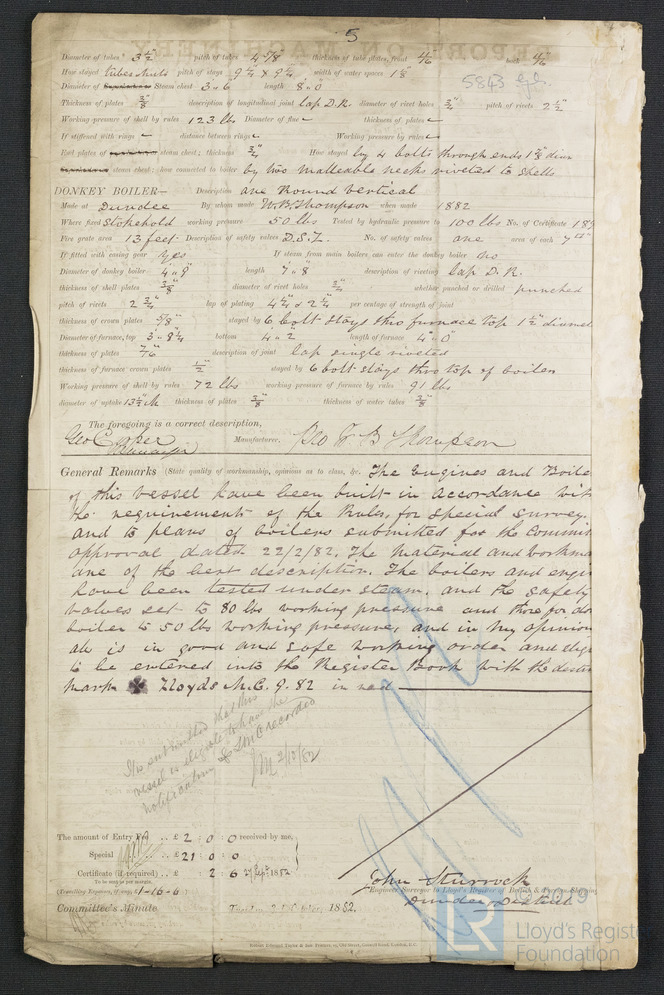 5
Diameter of tubes 3 1/2" pitch of tubes 4 7/8 thickness of tube plates, front 4/6 back 4/6
How stayed tubes & nuts pitch of stays 9 1/4 x 9 1/4 width of water spaces 1"8
5843
Diameter of Steam chest 3"6 length 8"0"
Thickness of plates 3/8" description of longitudinal joint lap D.R. diameter of rivet holes 3/4" pitch of rivets 2 1/2"
Working pressure of shell by rules 123 lbs Diameter of flue thickness of plates
If stiffened with rings distance between rings Working pressure by rules
End plates of steam chest; thickness 3/4" How stayed by 4 bolts through ends 1 7/8 diam
steam chest; how connected to boiler by two malleable necks riveted to shells
DONKEY BOILER— Description one Round vertical
Made at Dundee By whom made W.B. Thompson when made 1882
Where fixed Stokehold working pressure 50 lbs Tested by hydraulic pressure to 100 lbs No. of Certificate 189
Fire grate area 13 feet Description of safety valves D.S.L. No. of safety valves one area of each 7
If fitted with easing gear yes If steam from main boilers can enter the donkey boiler no
Diameter of donkey boiler 4"9" length 7"8 description of riveting lap D.R.
thickness of shell plates 3/8" diameter of rivet holes 3/4" whether punched or drilled punched
pitch of rivets 2 3/4" lap of plating 4 1/4 & 2 1/4" per centage of strength of joint
thickness of crown plates 5/8" stayed by 6 bolt stays thro furnace top 1 1/2" diamet
Diameter of furnace, top 3"8 1/4 bottom 4"2 length of furnace 4"0"
thickness of plates 7/16" description of joint lap single riveted
thickness of furnace crown plates 1/2" stayed by 6 bolt stays thro top of boiler
Working pressure of shell by rules 72 lbs working pressure of furnace by rules 91 lbs
diameter of uptake 13 1/2 in thickness of plates 3/8" thickness of water tubes 3/8"
The foregoing is a correct description,
Geo C Manager Manufacturer. W B Thompson
General Remarks (State quality of workmanship, opinions as to class, &c. The Engines and Boile
of this vessel have been built in accordance wit
the requirements of the Rules, for special survey.
and to plans of boilers submitted for the Commit
approval dated 22/2/82. The material and workma
are of the best description. The boilers and engi
have been tested under steam, and the safety
valves set to 80 lbs working pressure and those for do
boiler to 50 lbs working pressure, and in my opinion
all is in good and safe working order and elig
to be entered into the Register Book with the distin
mark ✠ Lloyds M.C. 9.82 in red
It is submitted that this
vessel is eligible to have the
notification ✠ LMC recorded
JM 2/10/82
The amount of Entry Fee .. £ 2 : 0 : 0 received by me,
Special .. £ 21 : 0 : 0
Certificate (if required) .. £ : 2 : 6 27 Sept 1882
To be sent as per margin.
(Travelling Expenses, if any, £ 1-16-6
John Sturrock
Engineer Surveyor to Lloyd's Register of British & Foreign Shipping
Dundee District
Committee's Minute Tuesday 3rd October 1882.
Lloyd's Register
Foundation